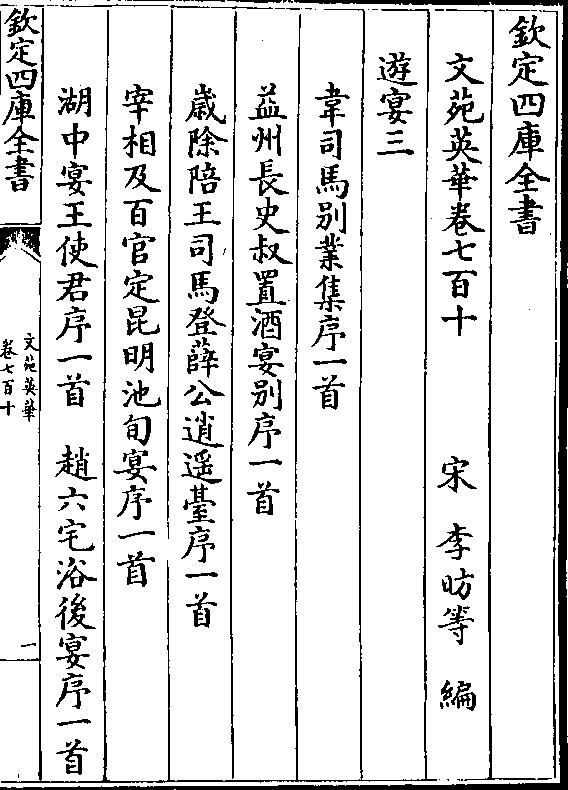 欽定四庫全書
文苑英華卷七百十
宋 李昉等 編
遊宴三
韋司馬别業集序一首
益州長史叔置酒宴别序一首
歲除陪王司馬登薛公逍遥臺序一首
宰相及百官定昆明池旬宴序一首
湖中宴王使君序一首 趙六宅浴後宴序一首
欽定四庫全書
文苑英華
卷七百十
一